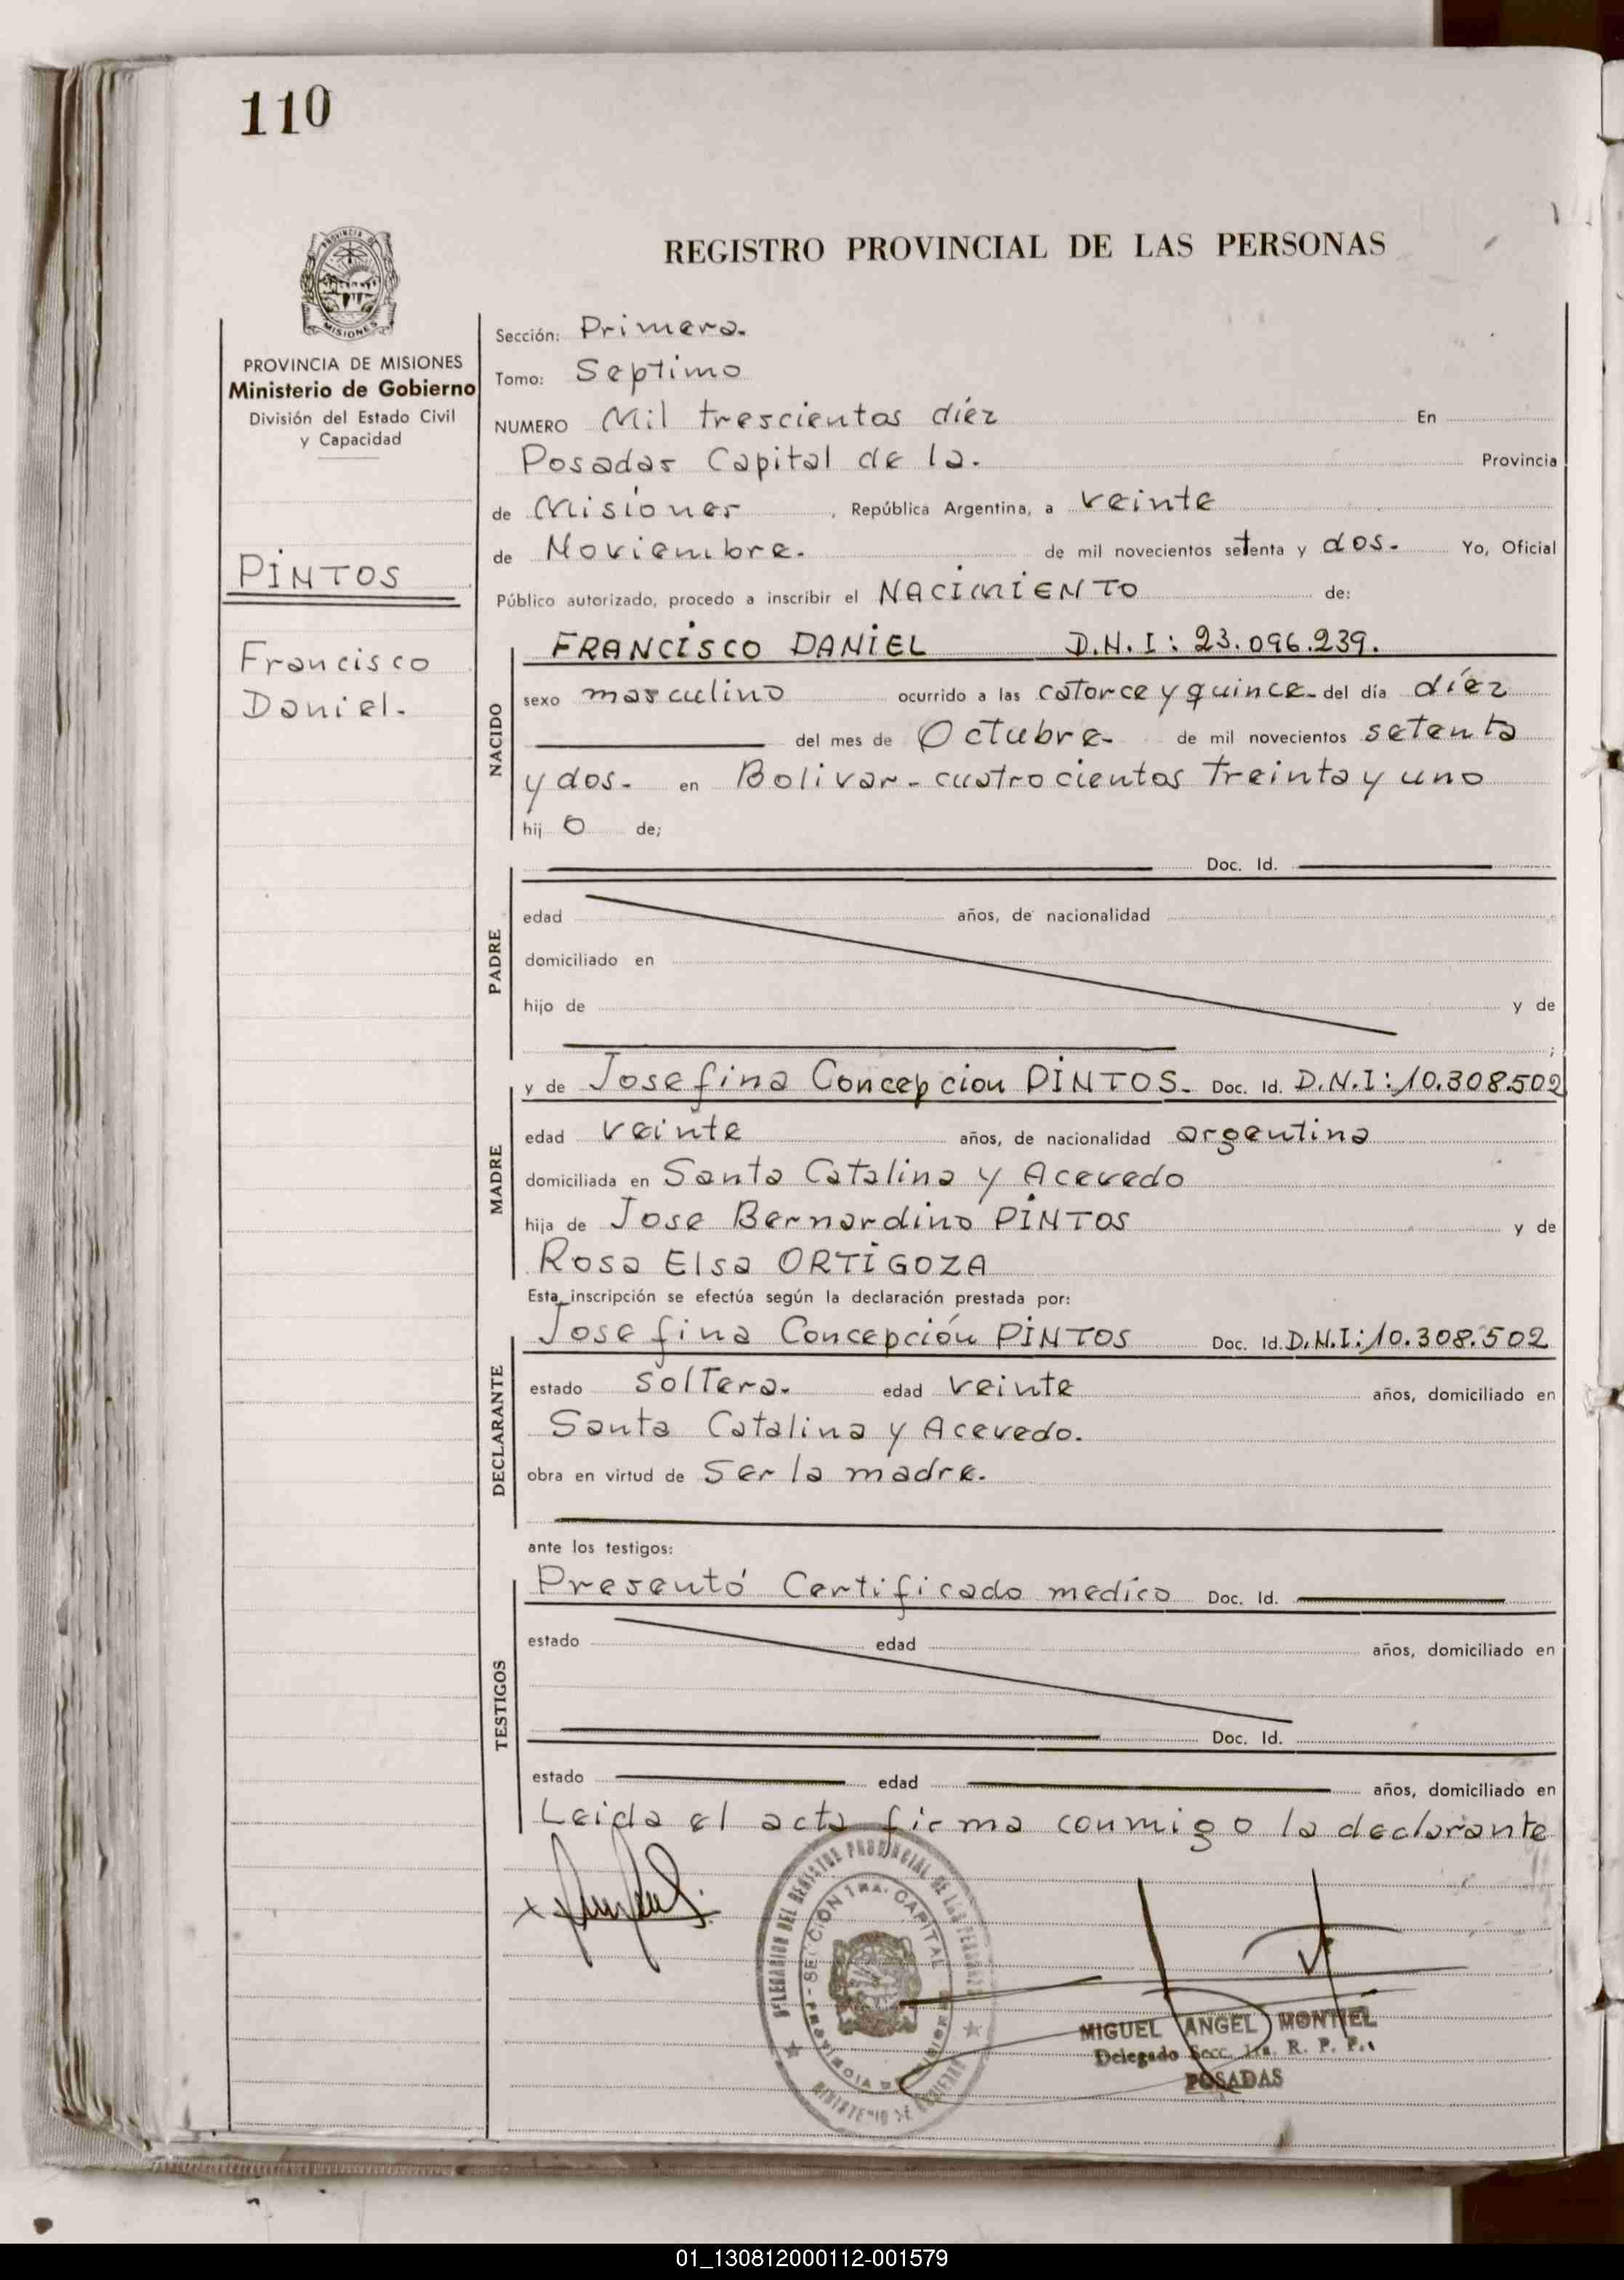 110
PROVINCIA DE MISIONES
REGISTRO PROVINCIAL DE LAS PERSONAS
PROVINCIA DE MISIONES
Ministerio de Gobierno
División del Estado Civil
y Capacidad
PINTOS
Francisco
Daniel.
Sección: Primera.
Tomo: Septimo
NUMERO Mil trescientos diez En
Posadas Capital de la. Provincia
de Misiones, República Argentina, a veinte
de Noviembre. de mil novecientos setenta y dos. Yo, Oficial
Público autorizado, procedo a inscribir el NACIMIENTO de:
NACIDO
FRANCISCO DANIEL D.N.I: 23.096.239.
sexo masculino ocurrido a las catorce y quince del día díez
del mes de Octubre. de mil novecientos setenta
y dos. en Bolivar - cuatrocientos treinta y uno
hij o de;
PADRE
Doc. Id.
edad años, de nacionalidad
domiciliado en
hijo de y de
;
MADRE
y de Josefina Concepcion PINTOS. Doc. Id. D.N.I: 10.308.502
edad veinte años, de nacionalidad argentina
domiciliada en Santa Catalina y Acevedo
hija de Jose Bernardino PINTOS y de
Rosa Elsa ORTIGOZA
Esta inscripción se efectúa según la declaración prestada por:
DECLARANTE
Josefina Concepción PINTOS Doc. Id. D.N.I: 10.308.502
estado soltera. edad veinte años, domiciliado en
Santa Catalina y Acevedo.
obra en virtud de ser la madre.
ante los testigos:
TESTIGOS
Presentó Certificado medico Doc. Id.
estado edad años, domiciliado en
Doc. Id.
estado edad años, domiciliado en
Leida el acta firma conmigo la declarante
DELEGACION DEL REGISTRO PROVINCIAL DE LAS PERSONAS
SECCIÓN 1RA. CAPITAL
MIGUEL ANGEL MONTIEL
Delegado Secc. 1ra. R. P. P.
POSADAS
01_130812000112-001579